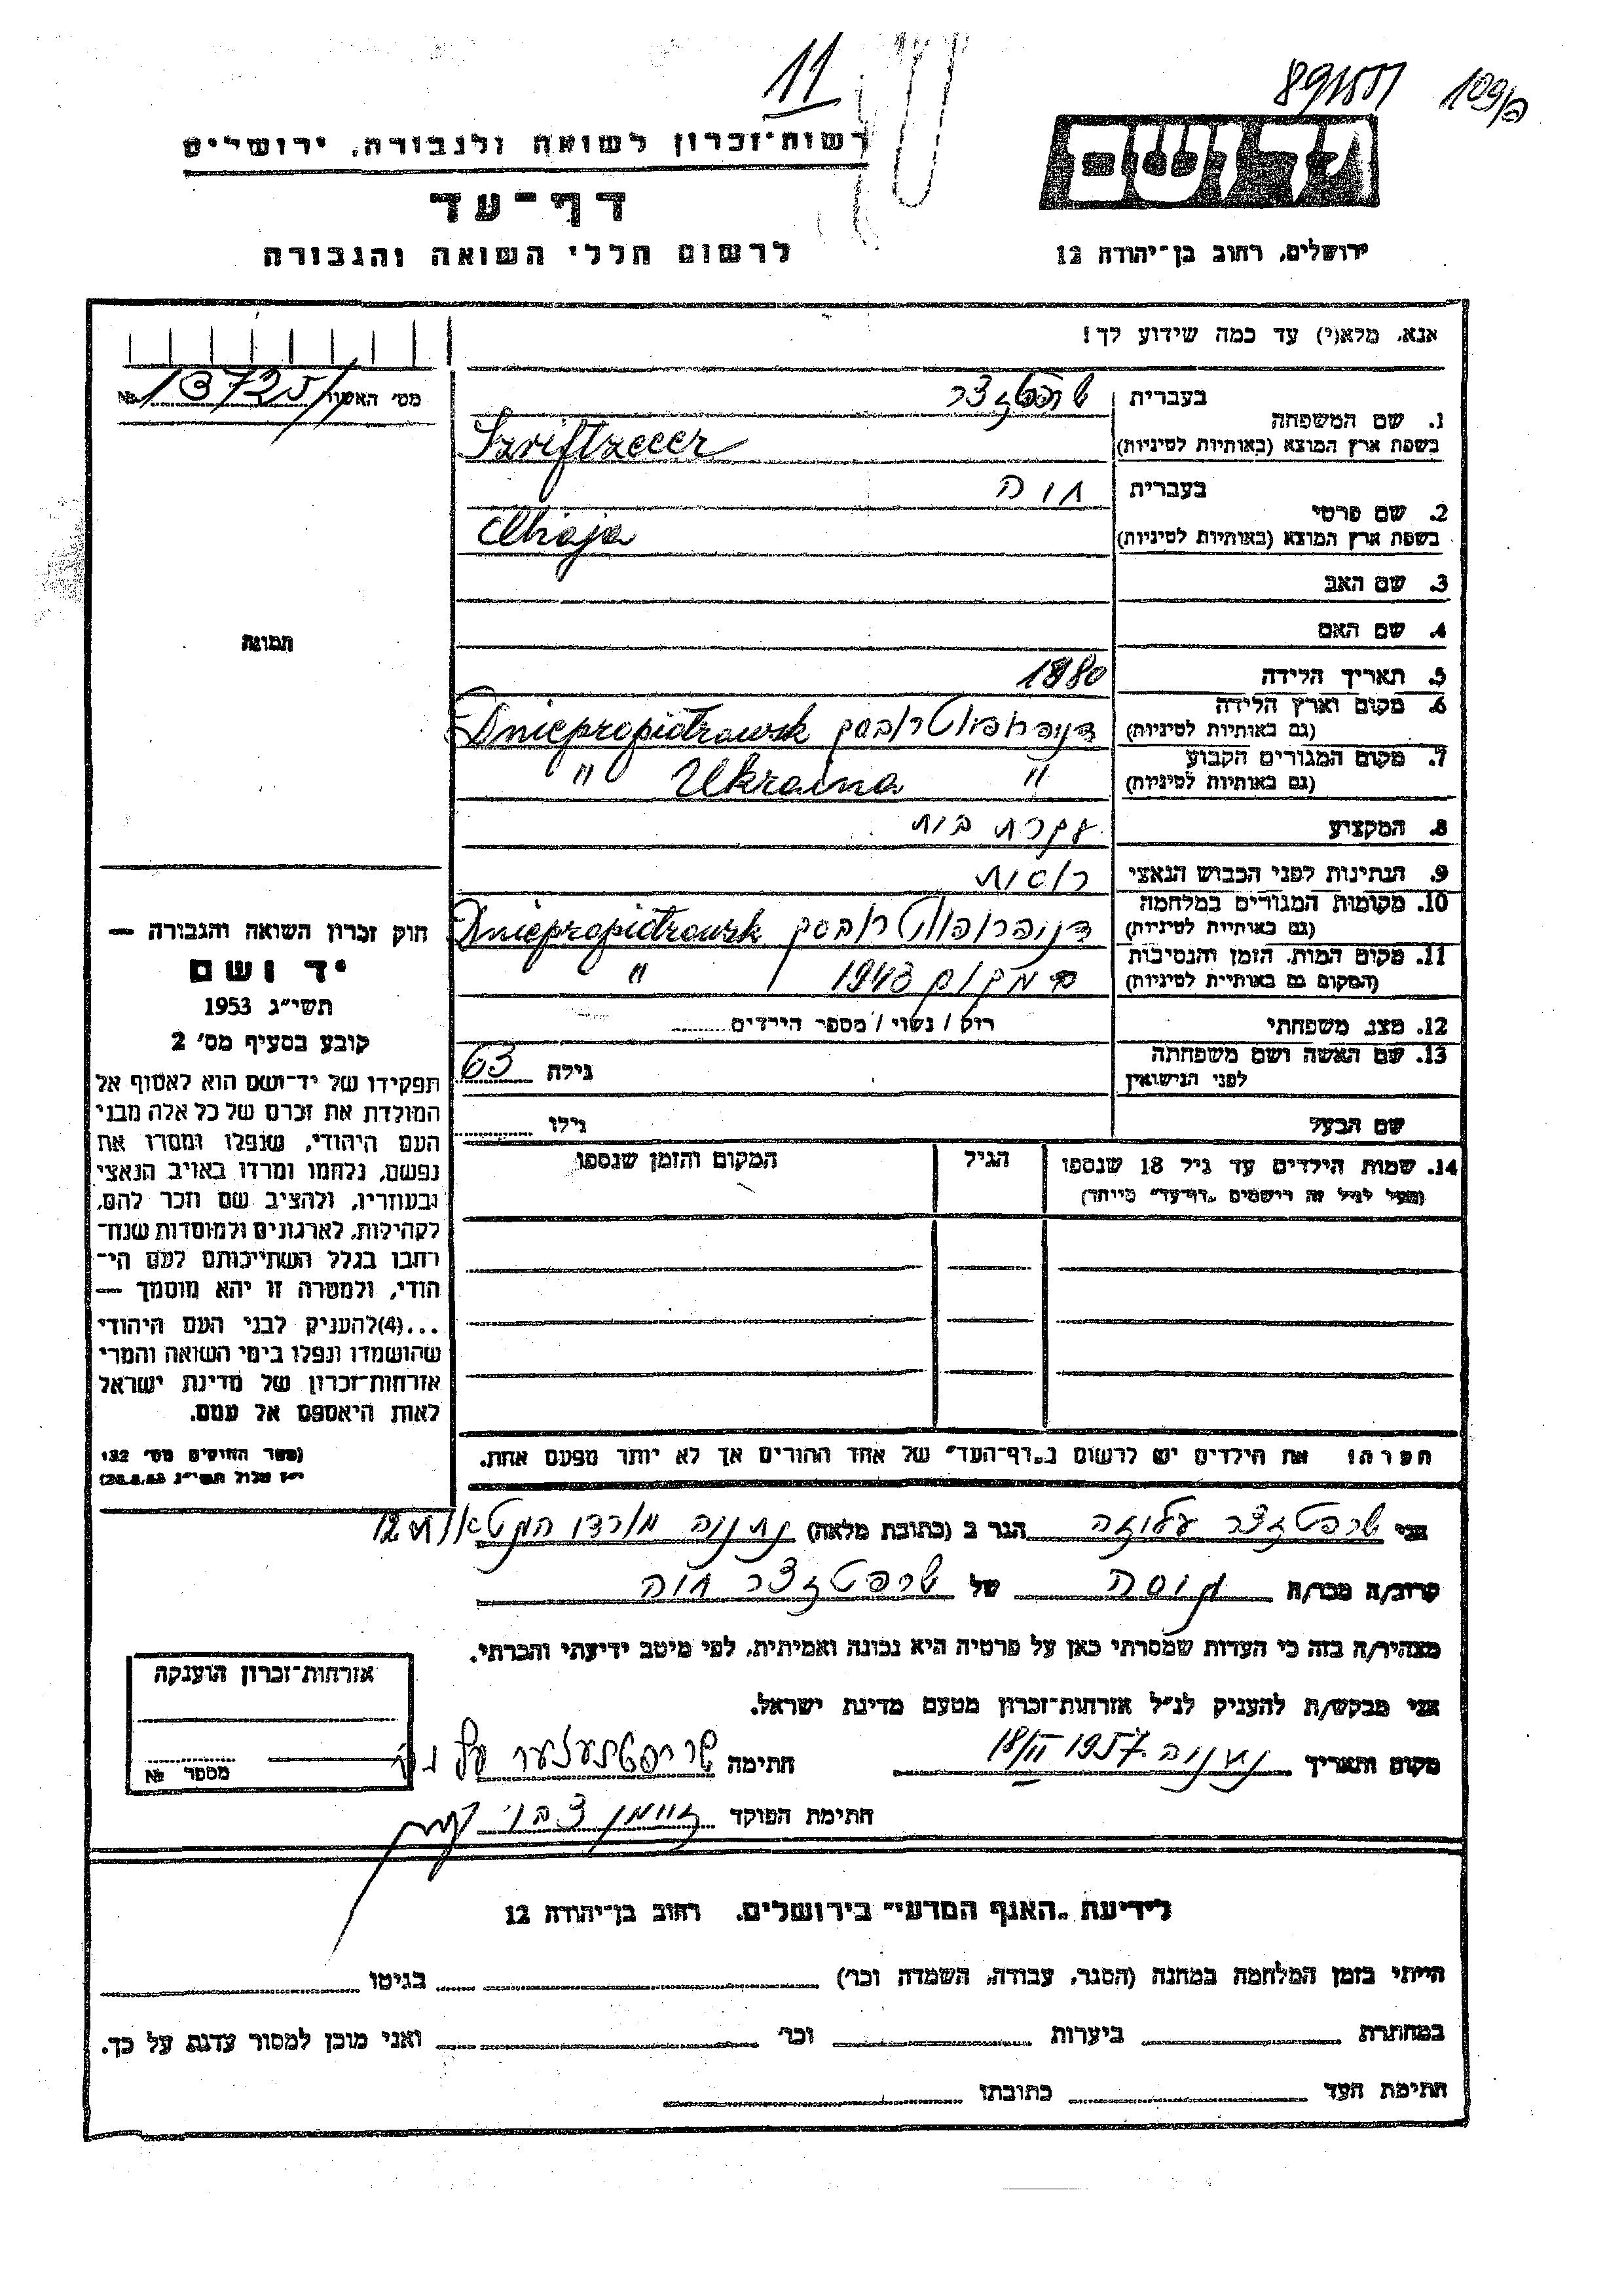 11
891571 109/פ
רשות־זכרון לשואה ולגבורה, ירושלים
יד ושם
דף־עד
לרשום חללי השואה והגבורה
ירושלים, רחוב בן־יהודה 12
אנא, מלא(י) עד כמה שידוע לך!
מס׳ האשור № 13725/
בעברית שרפטזצר
1. שם המשפחה
בשפת ארץ המוצא (באותיות לטיניות) Szriftzecer
בעברית חוה
2. שם פרטי
בשפת ארץ המוצא (באותיות לטיניות) Chaja
3. שם האב
4. שם האם
תמונה
5. תאריך הלידה 1880
6. מקום וארץ הלידה
(גם באותיות לטיניות) Dniepropiotrowsk דניפרופוטרובסק
7. מקום המגורים הקבוע
(גם באותיות לטיניות) " Ukraina "
8. המקצוע עקרת בית
9. הנתינות לפני הכבוש הנאצי רוסית
10. מקומות המגורים במלחמה
(גם באותיות לטיניות) Dniepropiotrowsk דניפרופוטרובסק
11. מקום המות, הזמן והנסיבות
(המקום גם באותיות לטיניות) במקום 1943 "
12. מצב משפחתי רוק / נשוי / מספר הילדים
13. שם האשה ושם משפחתה
לפני הנישואין גילה 63
שם הבעל גילו
14. שמות הילדים עד גיל 18 שנספו הגיל המקום והזמן שנספו
(מעל לגיל זה רושמים „דף־עד" מיוחד)
הערה: את הילדים יש לרשום ב„דף־העד" של אחד ההורים אך לא יותר מפעם אחת.
חוק זכרון השואה והגבורה —
יד ושם
תשי״ג 1953
קובע בסעיף מס׳ 2
תפקידו של יד־ושם הוא לאסוף אל
המולדת את זכרם של כל אלה מבני
העם היהודי, שנפלו ומסרו את
נפשם, נלחמו ומרדו באויב הנאצי
ובעוזריו, ולהציב שם וזכר להם,
לקהילות, לארגונים ולמוסדות שנח־
רבו בגלל השתייכותם לעם הי־
הודי, ולמטרה זו יהא מוסמך —
...(4)להעניק לבני העם היהודי
שהושמדו ונפלו בימי השואה והמרי
אזרחות־זכרון של מדינת ישראל
לאות היאספם אל עמם.
(ספר החוקים מס׳ 132
י״ז אלול תשי״ג 28.8.53)
אני שרפטזצר הגר ב (כתובת מלאה) נתניה מורדי הגטאות 12
קרוב/ה מכר/ה של שרפטזצר חוה
מצהיר/ה בזה כי העדות שמסרתי כאן על פרטיה היא נכונה ואמיתית, לפי מיטב ידיעתי והכרתי.
אני מבקש/ת להעניק לנ״ל אזרחות־זכרון מטעם מדינת ישראל.
מקום ותאריך נתניה 18/II 1957 חתימה
חתימת הפוקד
אזרחות־זכרון הוענקה
מספר №
לידיעת „האגף המדעי" בירושלים, רחוב בן־יהודה 12
הייתי בזמן המלחמה במחנה (הסגר, עבודה, השמדה וכר׳) בגיטו
במחתרת ביערות וכר׳ ואני מוכן למסור עדות על כך.
חתימת העד כתובתו